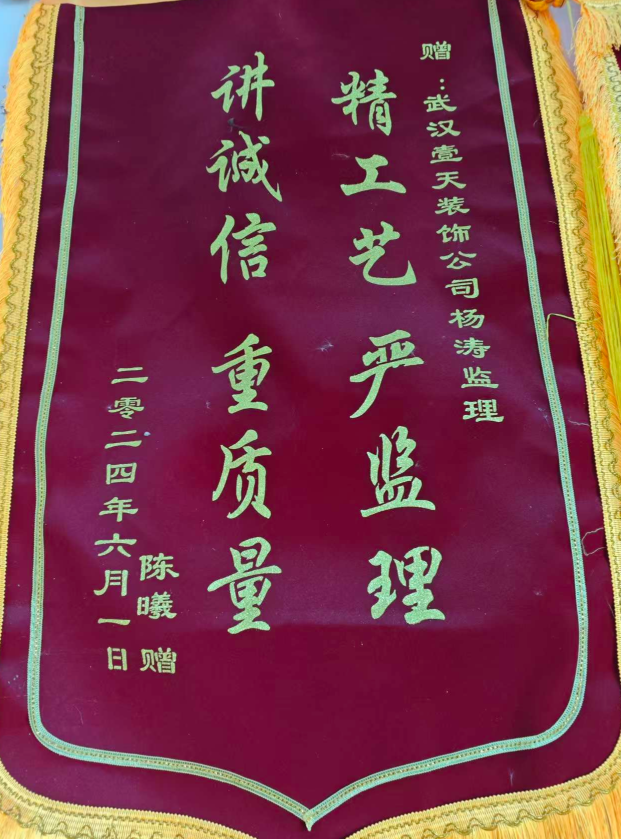 赠：武汉壹天装饰公司杨涛监理
精工艺 严监理
讲诚信 重质量
陈曦 赠
二零二四年六月一日